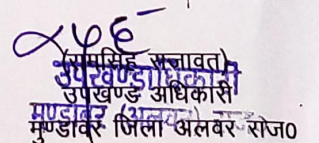 (रामसिंह राजावत)
उपखण्डाधिकारी
उपखण्ड अधिकारी
मुण्डावर (अलवर)
मुण्डावर जिला अलवर राज०